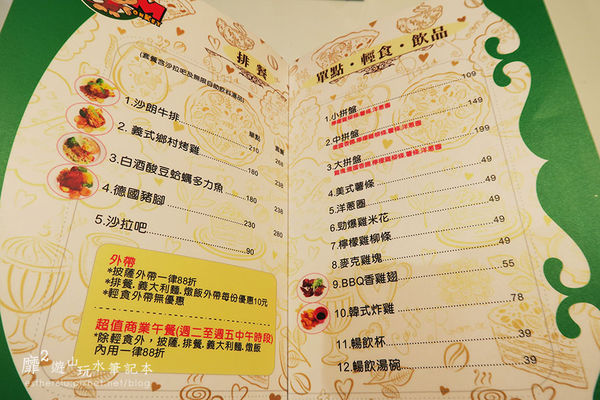 排餐
(套餐含沙拉吧及無限自助飲料湯品)
單點 套餐
1.沙朗牛排 210 268
2. 義式鄉村烤雞 180 238
3.白酒酸豆蛤蠣多力魚 180 238
4.德國豬腳 230 280
5.沙拉吧 90
外帶
*披薩外帶一律88折
*排餐.義大利麵.燉飯外帶每份優惠10元
*輕食外帶無優惠
超值商業午餐(週二至週五中午時段)
*除輕食外，披薩.排餐.義大利麵.燉飯
內用一律88折
單點・輕食・飲品
1.小拼盤 109
檸檬雞柳條.薯條.洋蔥圈
2.中拼盤 149
3.大拼盤 199
4.美式薯條 49
5.洋蔥圈 49
6.勁爆雞米花 49
7.檸檬雞柳條 49
8.麥克雞塊 49
9.BBQ香雞翅 55
10.韓式炸雞 78
11.暢飲杯 39
12.暢飲湯碗 39
靡²遊山玩水筆記本
estherslu.pixnet.net/blog